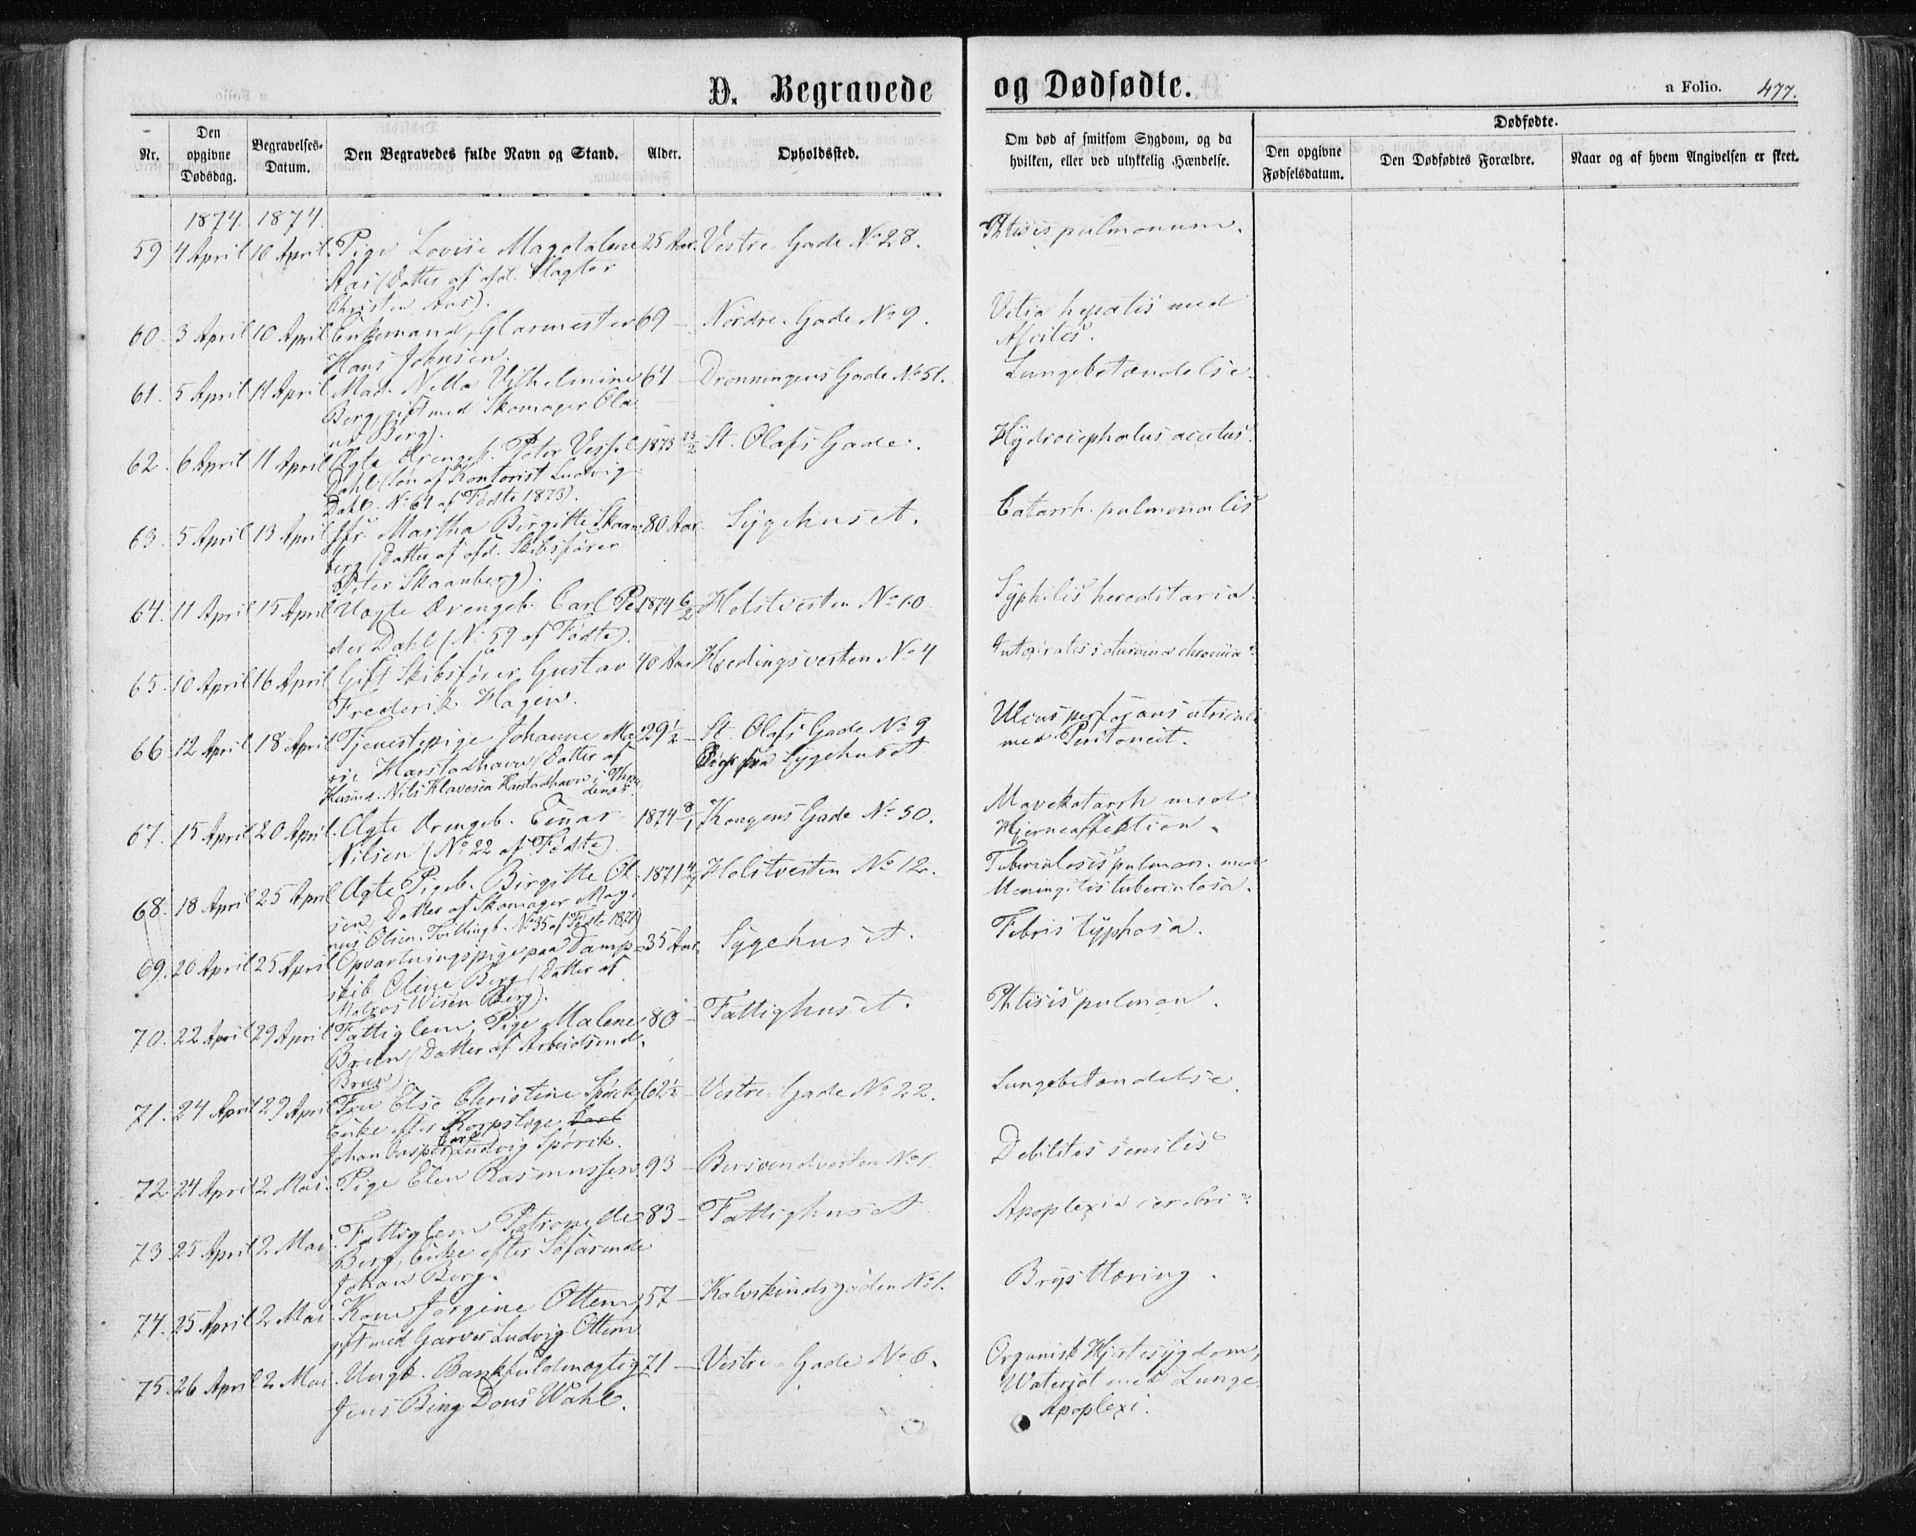 D. Begravede og Dødfødte.
a Folio. 477.
Nr. Den opgivne Dødsdag. Begravelses-Datum. Den Begravedes fulde Navn og Stand. Alder. Opholdssted. Om død af smitsom Sygdom, og da hvilken, eller ved ulykkelig Hændelse.
Dødfødte.
Den opgivne Fødselsdatum. Den Dødfødtes Forældre. Naar og af hvem Angivelsen er skeet.
1874. 1874.
59 4 April 10 April. Pige Lovise Magdalene 25 Aar. Vestre Gade No 28. Phtisis pulmonum.
Aas (Datter af afd. Slagter
Christen Aas).
60. 3 April 10 April Enkemand, Glarmester 69 — Nordre Gade No 9. Vitia hepatis med
Hans Johnsen. Ascites.
61. 5 April 11 April Mad. Nella Vilhelmine 61 — Dronningens Gade No 51. Lungebetændelse.
Berg, gift med Skomager Ola
us Berg).
62. 6 April 11 April Ægte Drengeb. Peter Vessel 1873 23/2 St. Olafs Gade. Hydrocephalus acutus.
Dahl (Søn af Kontorist Ludvig
Dahl. No 64 af Fødte 1873).
63. 5 April 13 April Jfr. Martha Birgitte Skaan- 80 Aar. Sygehuset. Catarrh. pulmonalis
berg (Datter af afd. Skibsfører
Peter Skaanberg).
64. 11 April 15 April Uægte Drengeb. Carl Pe- 1874 6/2 Holstvesten No 10 Syphilis hereditaria.
der Dahl (No 59 af Fødte).
65. 10 April 16 April Gift Skibsfører Gustav 40 Aar Hædingsvesten No 4
Frederik Hagen.
66. 12 April 18 April Tjenestepige Johanne Ma- 29 1/2 — St. Olafs Gade No 9 Ulcus perforans
rie Harstadhavn (Datter af Sygehuset med Peritoneit.
Husmd. Nils Klavesen Harstadhavn,
67. 15 April 20 April. Ægte Drengeb. Einar 1874 8/1 Kongens Gade No 50. Mavekatarrh med
Nilsen (No 22 af Fødte). Hjerneaffektion.
68. 18 April 25 April Ægte Pigeb. Birgitte Ol- 1871 4/7 Holstvesten No 12. Tuberculosis pulmon. med
sen, Datter af Skomager Mag- Meningitis tuberculosa.
nus Olsen. Tvillingb. No 35 af Fødte 1871)
69. 20 April 25 April Opvartningspige paa Damp- 35 Aar. Sygehuset. Febris typhosa.
skib Oline Berg (Datter af
Matros Berg).
70. 22 April 29 April Fattiglem, Pige Malene 80 — Fattighuset. Phtisis pulmon.
Bruun (Datter af Arbeidsmd.
Bruun).
71. 24 April 29 April Fru Else Christine Spørck, 62 1/2 — Vestre Gade No 22. Lungebetændelse.
Enke efter Korpslæge Carl
Johan Casper Carl Ludvig Spørck.
72. 24 April 2 Mai. Pige Elen Rasmussen. 93 — Bersvendvesten No 1. Debilitas senilis
73. 25 April 2 Mai. Fattiglem Petronelle 83 — Fattighuset Apoplexia cerebri
Berg, Enke efter Søfarende
Johan Berg.
74. 25 April 2 Mai. Kone Jørgine Ottem, 57 — Kalvskindsgaden No 1. Brysttæring.
gift med Garver Ludvig Ottem
75. 26 April 2 Mai. Ungk. Bankfuldmægtig 71 — Vestre Gade No 6. Organisk Hjertesygdom,
Jens Bing Dons Wahl. Watersot med Lunge
Apoplexi.